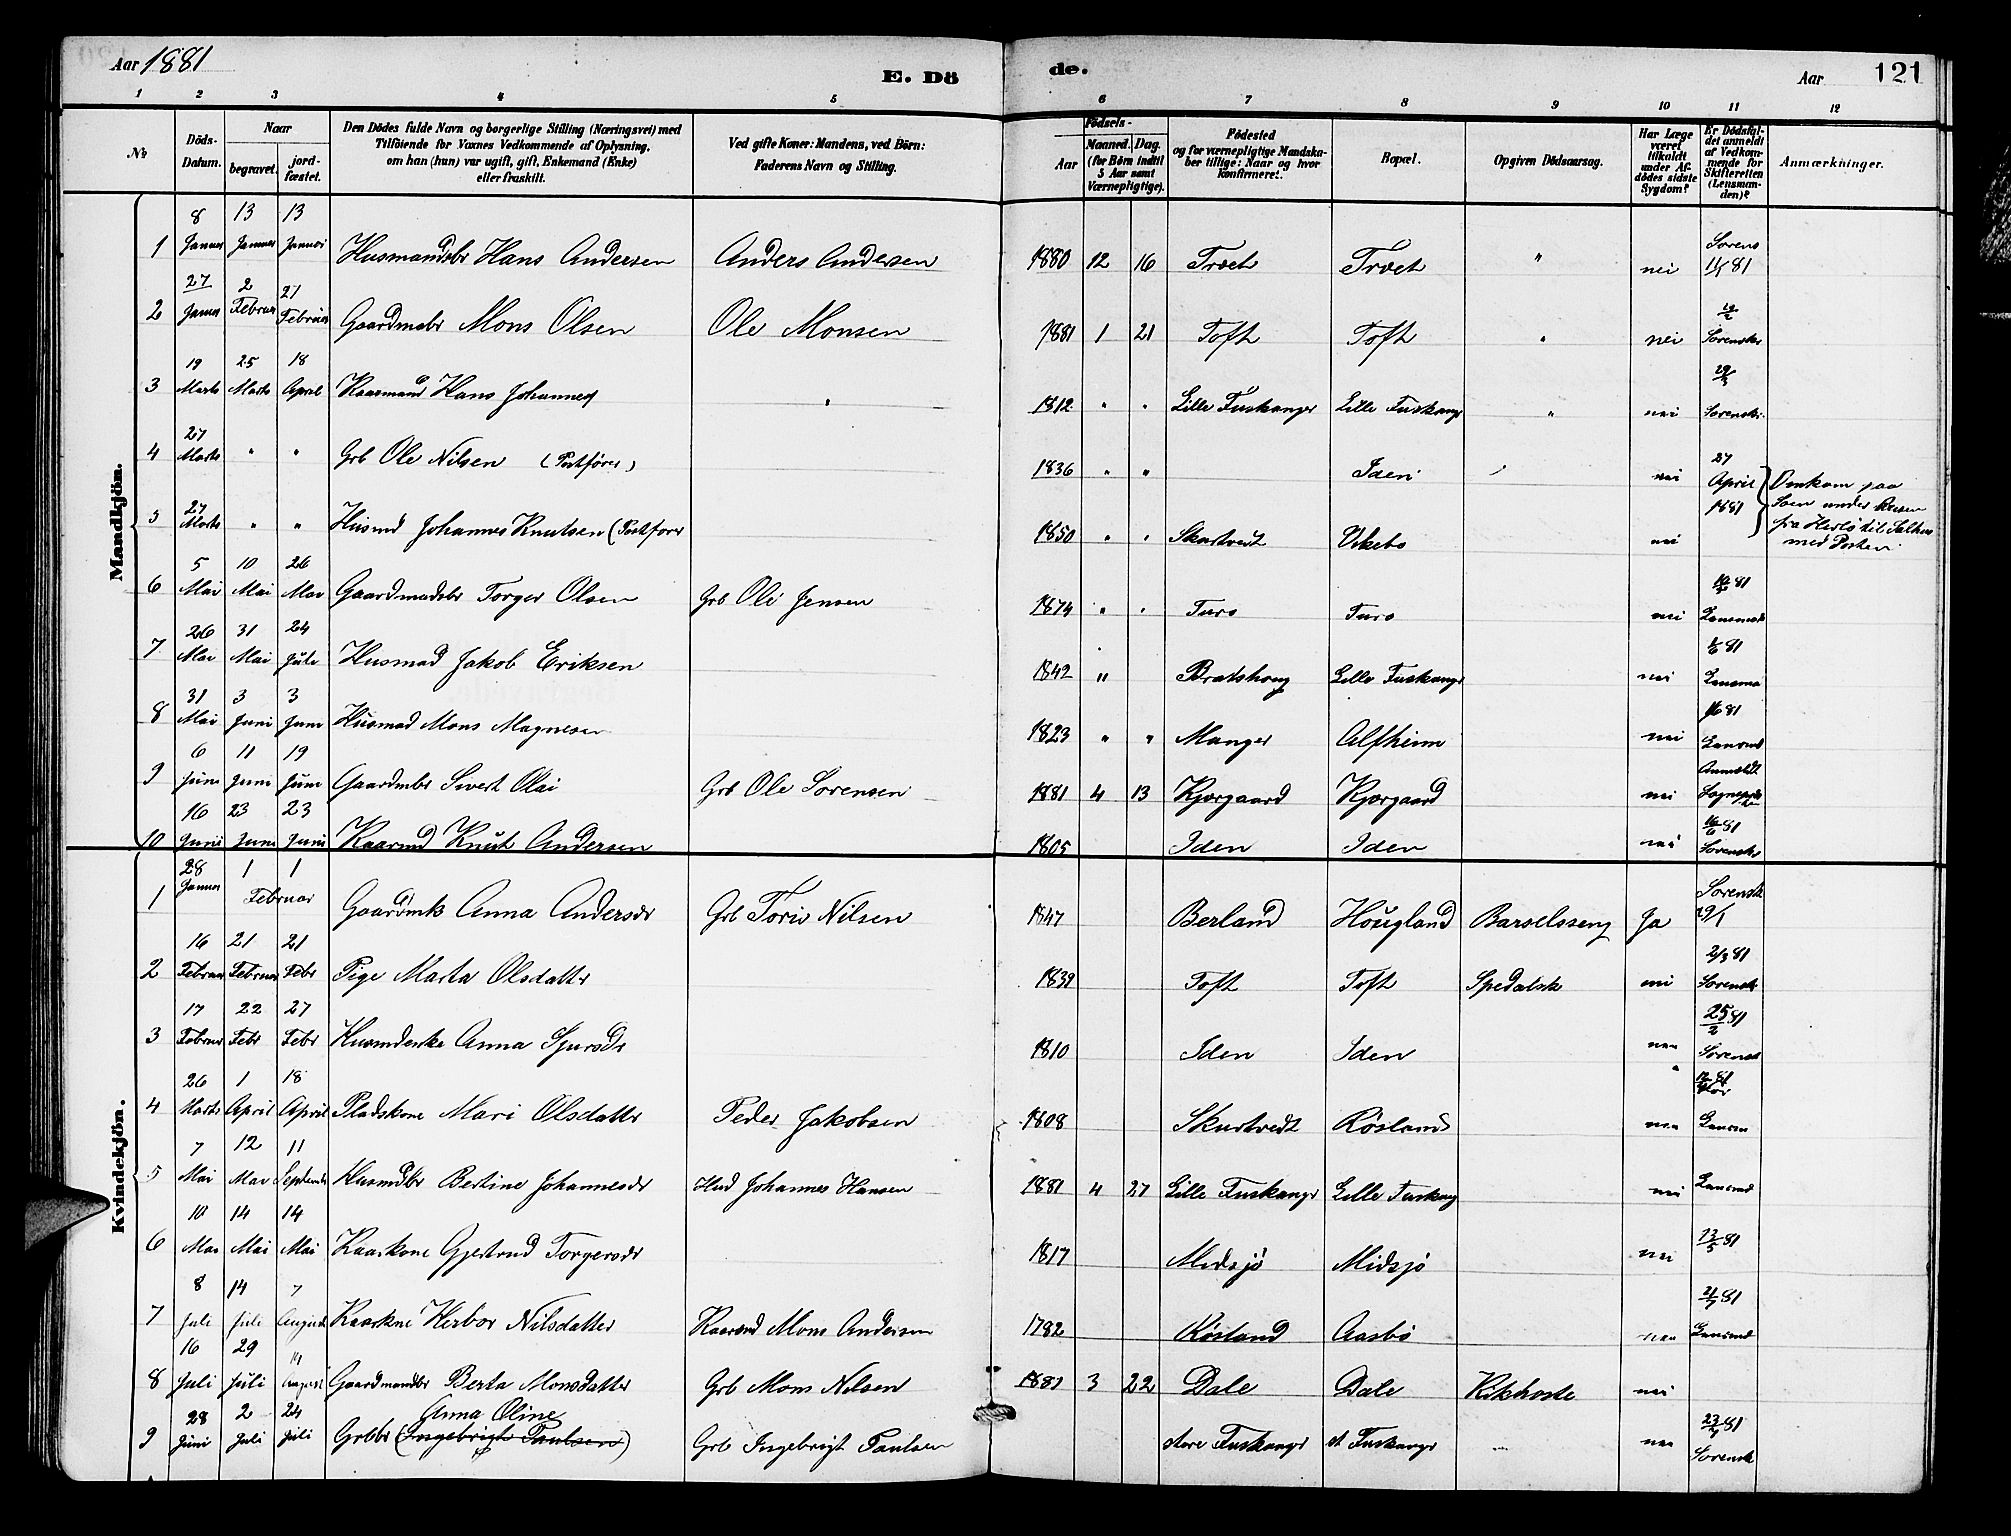 Aar 1881
E. Dö
de.
Aar
121
1 2 3 4 5 6 7 8 9 10 11 12
No
Döds-
Datum.
Naar
begravet. jord-
fæstet.
Den Dödes fulde Navn og borgerlige Stilling (Næringsvei) med
Tilföiende for Voxnes Vedkommende af Oplysning,
om han (hun) var ugift, gift, Enkemand (Enke)
eller fraskilt.
Ved gifte Koner: Mandens, ved Börn:
Faderens Navn og Stilling.
Födsels-
Aar Maaned. Dag.
(for Börn indtil
5 Aar samt
Værnepligtige).
Födested
og for værnepligtige Mandska-
ber tillige: Naar og hvor
konfirmeret.
Bopæl.
Opgiven Dödsaarsag.
Har Læge
været
tilkaldt
under Af-
dödes sidste
Sygdom?
Er Dödsfal-
det anmeldt
af Vedkom-
mende for
Skifteretten
(Lensman-
den)?
Anmærkninger.
Mandkjön.
8 13 13
1 Januar Januar Januar Husmandsbr Hans Andersen Anders Andersen 1880 12 16 Troet Troet " nei Sorens 81
27 2 21
2 Januar Februar Februar Gaardmabr Mons Olsen Ole Monsen 1881 1 21 Toft Toft " nei Sorenskr
19 25 18
3 Marts Marts April Kaarmand Hans Johannes " 1812 " " Lille Fuskanger Lille Fuskangr " nei Sorenskr
27
4 Marts " " Grb Ole Nilsen (Postfører) 1836 " " Iden nei 27 April 1881
Omkom paa
Søen under Reisen
fra Herlø til Salhus
med Posten
27
5 Marts " " Husmd Johannes Knutsen (Postfører 1850 " " Skurtvedt Vikebø nei
5 10 26
6 Mai Mai Mai Gaardmadsbr Torger Olsen Grb Ole Jensen 1874 " " Turø Turø nei 81 Lensmd
26 31 24
7 Mai Mai Jule Husmad Jakob Eriksen 1842 " Bratshoug Lille Fuskangr nei 1/6 81 Lensma
31 3 3
8 Mai Juni Juni Husmad Mons Magnesen 1823 " " Manger Alfheim nei 81 Lensmd
6 11 19
9 Juni Juni Juni Gaardmbr Sivert Olai Grb Ole Sorensen 1881 4 13 Kjærgaard Kjærgaard nei Anmeldt
16 23 23
10 Juni Juni Juni Kaarmd Knut Andersen 1805 Iden Iden nei 16/6 81 Sorenskr
Kvindekjön.
28 1 1
1 Januar Februar Gaardmk Anna Andersdr Grb Toris Nilsen 1847 Berland Hougland Barselsseng Ja Sorensk 29/1
16 21 21
2 Februar Februar Febr Pige Marta Olsdatter 1839 Toft Toft Spedalsk nei 2/3 81 Sorensk
17 22 27
3 Februar Febr Febr Husmdenke Anna Sjursdr 1810 Iden Iden nei 25/2 81 Sorensk
26 1 18
4 Marts April April Pladskone Mari Olsdatter Peder Jakobsen 1808 Skurtvedt Røsland nei 81 Lensm
7 12 11
5 Mai Mai Septemb Husmdbr Bertine Johannesdr Hmd Johannes Hansen 1881 4 27 Lille Fuskangr Lille Fuskang nei Lensmd
10 14 14
6 Mai Mai Mai Kaarkone Gjertrud Torgersdr 1817 Midsjö Midsjö nei 13/5 81
8 14 7
7 Juli Juli August Kaarkne Herbor Nilsdatter Kaarmd Mons Andersen 1782 Røsland Aasbø nei 21/7 81 Lensmd
16 29 14
8 Juli Juli August Gaardmandbr Berta Monsdatter Grb Mons Nilsen 1881 3 22 Dale Dale Kikhoste nei
28 2 24 Anna Oline
9 Juni Juli Juli Grbbr (Ingebrigt Paulsen) Grb Ingebrigt Paulsen store Fuskangr st Fuskangr nei 81 Sorensk